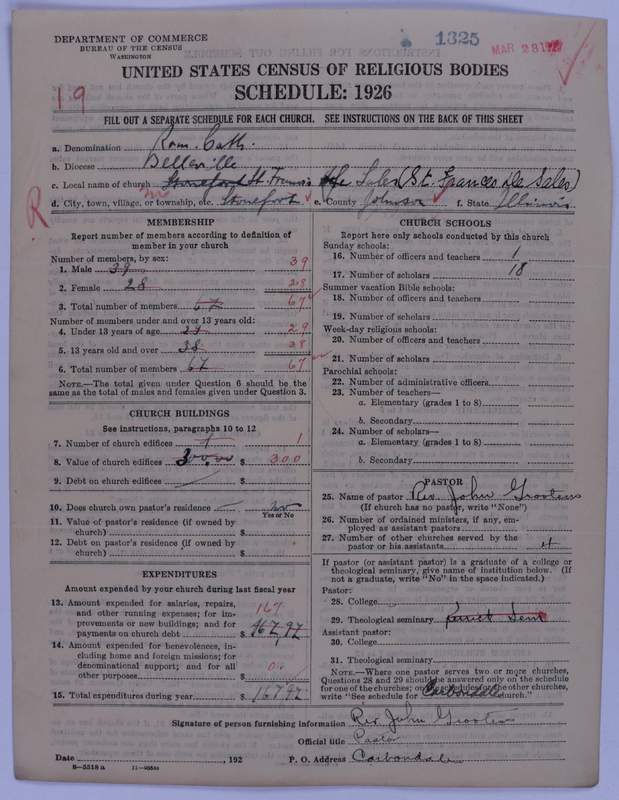 DEPARTMENT OF COMMERCE
BUREAU OF THE CENSUS
WASHINGTON
1325
MAR 28 1927
UNITED STATES CENSUS OF RELIGIOUS BODIES
SCHEDULE: 1926
19
FILL OUT A SEPARATE SCHEDULE FOR EACH CHURCH. SEE INSTRUCTIONS ON THE BACK OF THIS SHEET
a. Denomination Rom. Cath.
b. Diocese Belleville
c. Local name of church Stonefort St. Francis the Sales (St. Frances De Sales)
R
d. City, town, village, or township, etc. Stonefort e. County Johnson f. State Illinois
MEMBERSHIP
Report number of members according to definition of
member in your church
Number of members, by sex:
1. Male 39 39
2. Female 28 28
3. Total number of members 67 67
Number of members under and over 13 years old:
4. Under 13 years of age 29
5. 13 years old and over 38 38
6. Total number of members 67 67
NOTE.—The total given under Question 6 should be the
same as the total of males and females given under Question 3.
CHURCH BUILDINGS
See instructions, paragraphs 10 to 12
7. Number of church edifices 1 1
8. Value of church edifices 300.00 $ 300
9. Debt on church edifices $
10. Does church own pastor's residence no
Yes or No
11. Value of pastor's residence (if owned by
church) $
12. Debt on pastor's residence (if owned by
church) $
EXPENDITURES
Amount expended by your church during last fiscal year
13. Amount expended for salaries, repairs,
and other running expenses; for im-
provements or new buildings; and for
payments on church debt $ 167.97
167
14. Amount expended for benevolences, in-
cluding home and foreign missions; for
denominational support; and for all
other purposes $
15. Total expenditures during year $ 167.97
CHURCH SCHOOLS
Report here only schools conducted by this church
Sunday schools:
16. Number of officers and teachers 1
17. Number of scholars 18
Summer vacation Bible schools:
18. Number of officers and teachers
19. Number of scholars
Week-day religious schools:
20. Number of officers and teachers
21. Number of scholars
Parochial schools:
22. Number of administrative officers
23. Number of teachers—
a. Elementary (grades 1 to 8)
b. Secondary
24. Number of scholars—
a. Elementary (grades 1 to 8)
b. Secondary
PASTOR
25. Name of pastor Rev. John
(If church has no pastor, write "None")
26. Number of ordained ministers, if any, em-
ployed as assistant pastors
27. Number of other churches served by the
pastor or his assistants
If pastor (or assistant pastor) is a graduate of a college or
theological seminary, give name of institution below. (If
not a graduate, write "No" in the space indicated.)
Pastor:
28. College
29. Theological seminary
Assistant pastor:
30. College
31. Theological seminary
NOTE.—Where one pastor serves two or more churches,
Questions 28 and 29 should be answered only on the schedule
for one of the churches; on the schedules for the other churches,
write "See schedule for Carbondale church."
Signature of person furnishing information Rev. John
Official title Pastor
Date , 192 P. O. Address Carbondale
8—5518 a